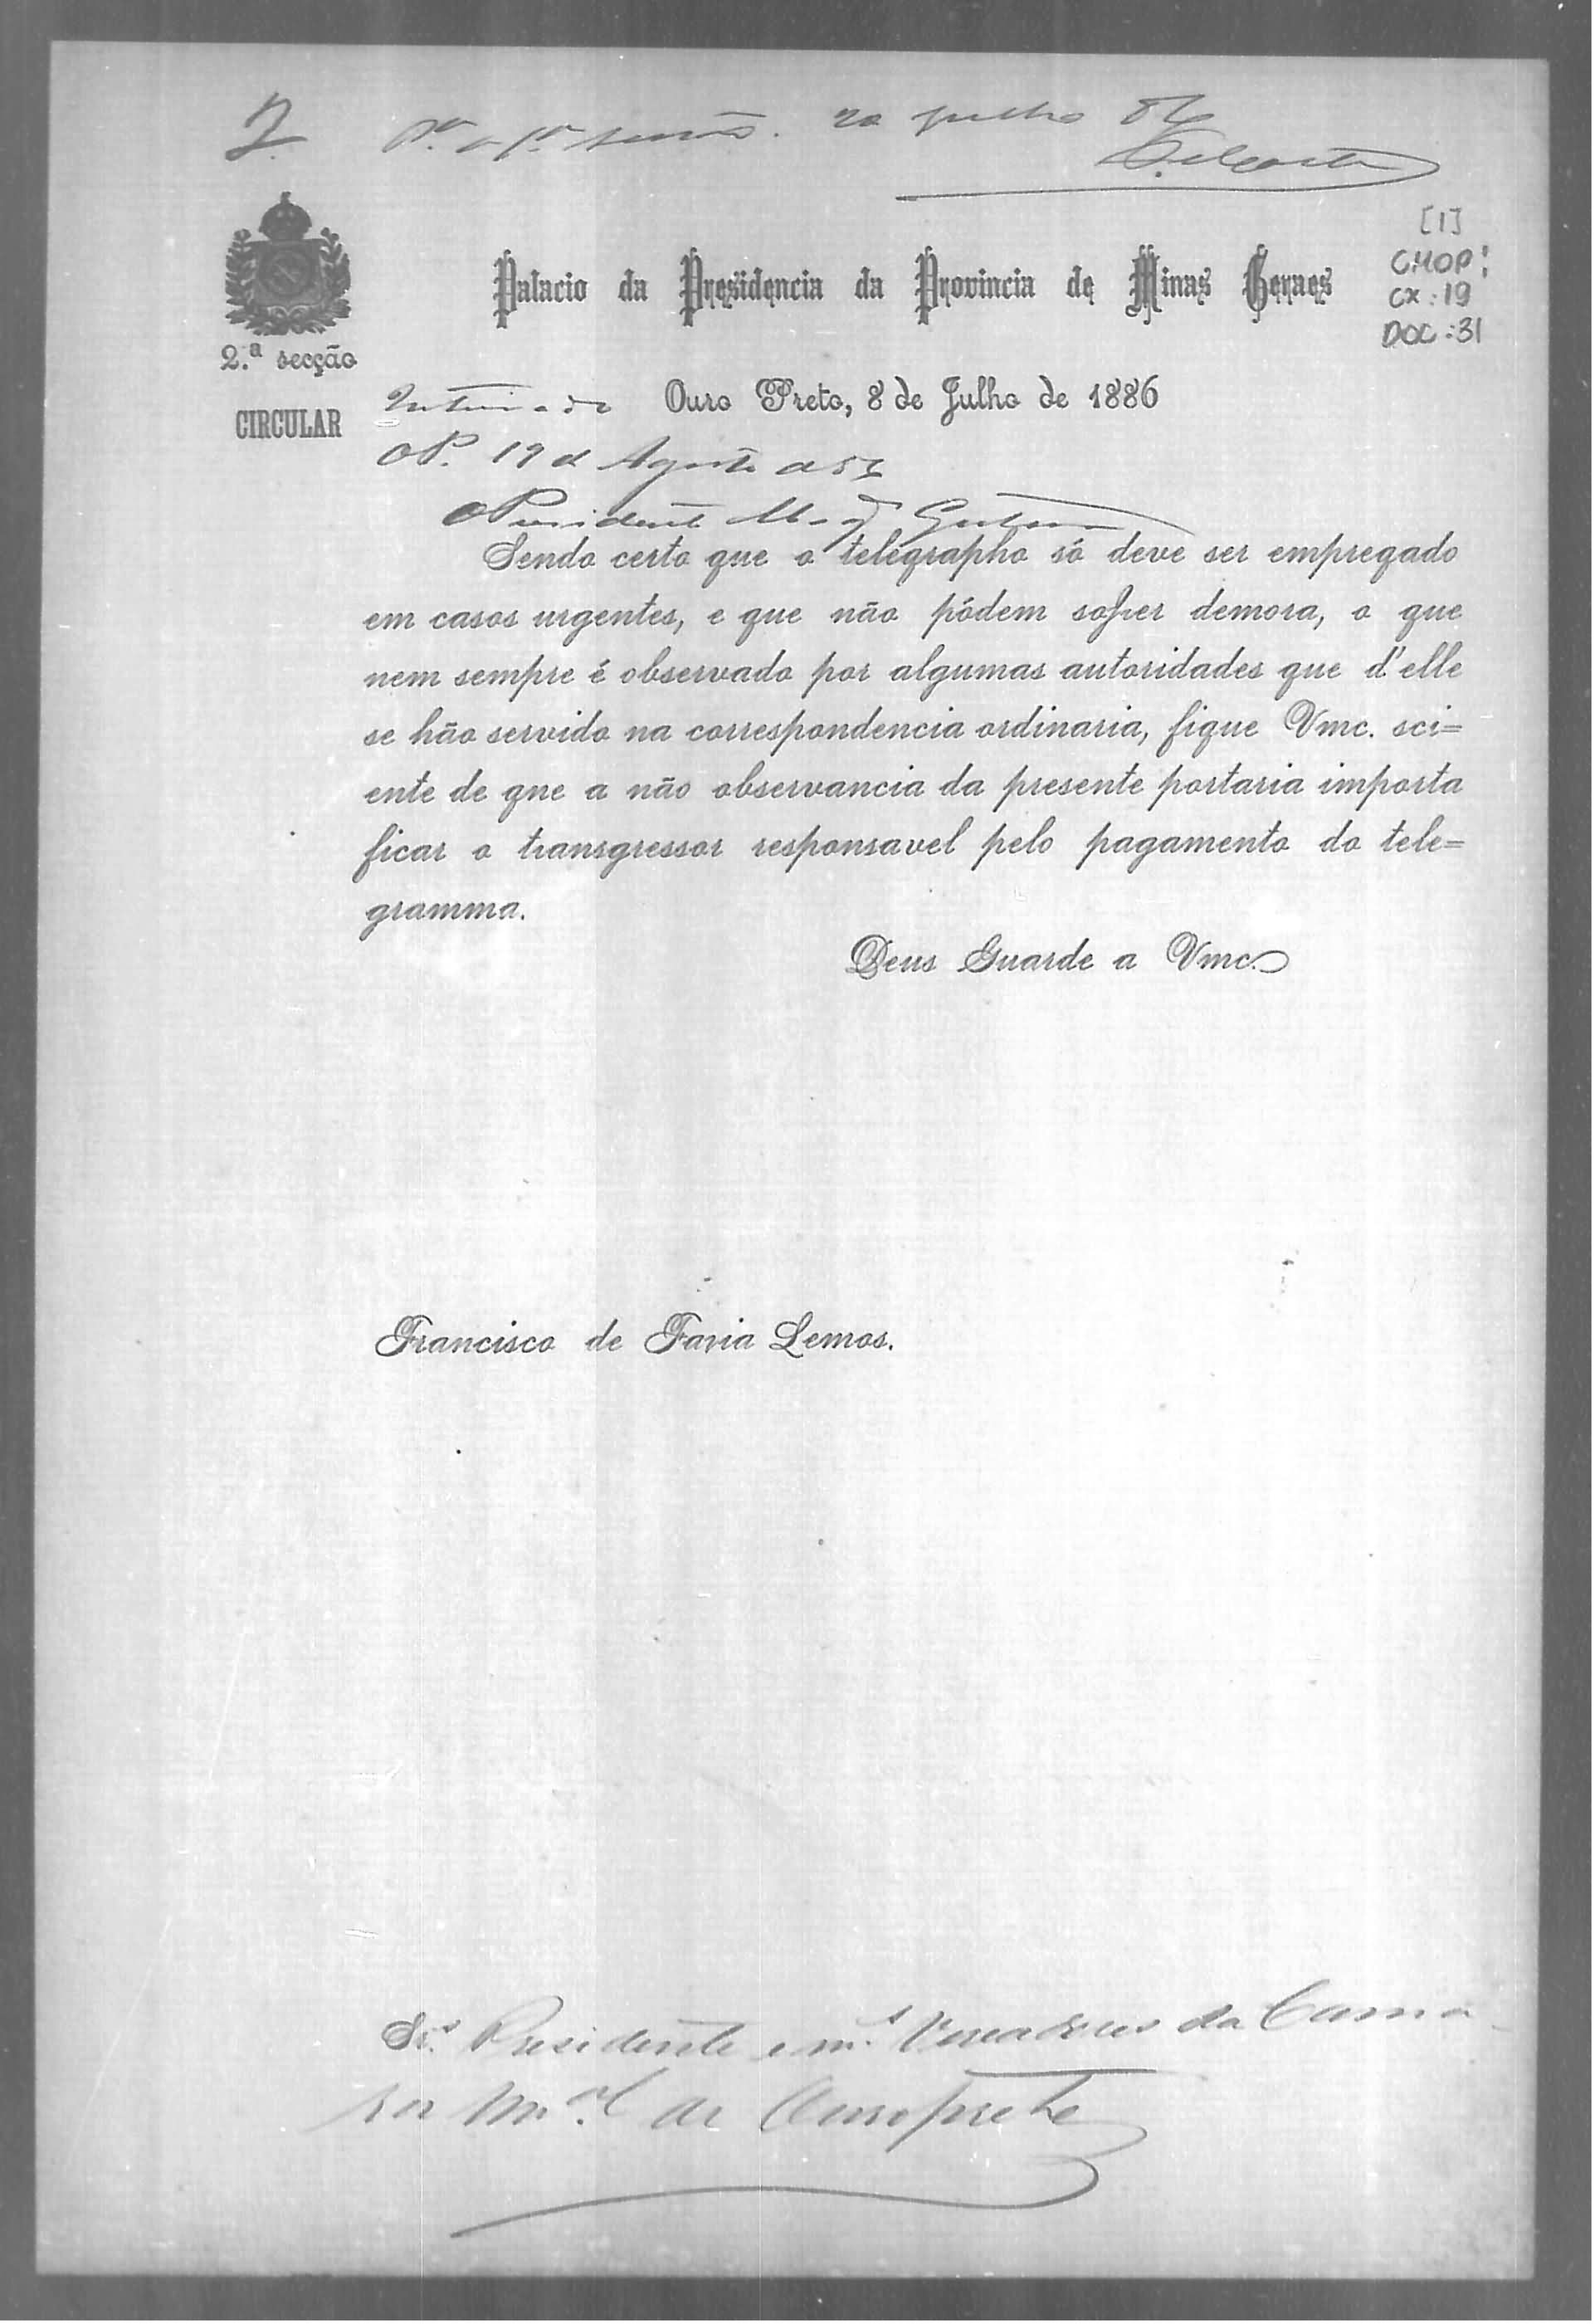 2. P.ª a 1.ª secção. 20 julho 86
[1]
CMOP:
CX: 19
DOC: 31
Palacio da Presidencia da Provincia de Minas Geraes
2.ª secção
CIRCULAR
Inteirado
Ouro Preto, 8 de Julho de 1886
OP. 19 d Agosto de 86
O Presidente
Sendo certo que o telegrapho só deve ser empregado
em casos urgentes, e que não pódem soffrer demora, o que
nem sempre é observado por algumas autoridades que d'elle
se hão servido na correspondencia ordinaria, fique Vmc. sci=
ente de que a não observancia da presente portaria importa
ficar o transgressor responsavel pelo pagamento do tele=
gramma.
Deus Guarde a Vmc.
Francisco de Faria Lemos.
Srs. Presidente e m.s Vereadores da Cama
ra M.al de Ouro preto